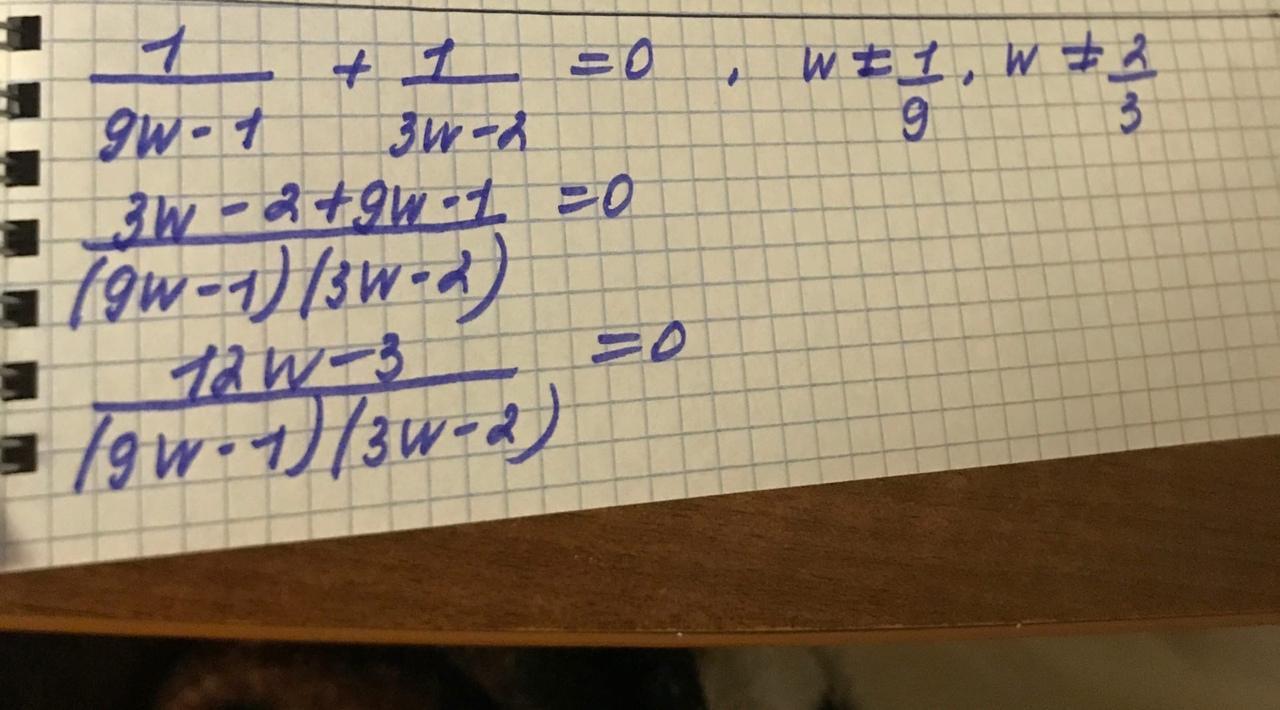 1/(9w-1) + 1/(3w-2) = 0, w ≠ 1/9, w ≠ 2/3
(3w-2+9w-1)/((9w-1)(3w-2)) = 0
(12w-3)/((9w-1)(3w-2)) = 0